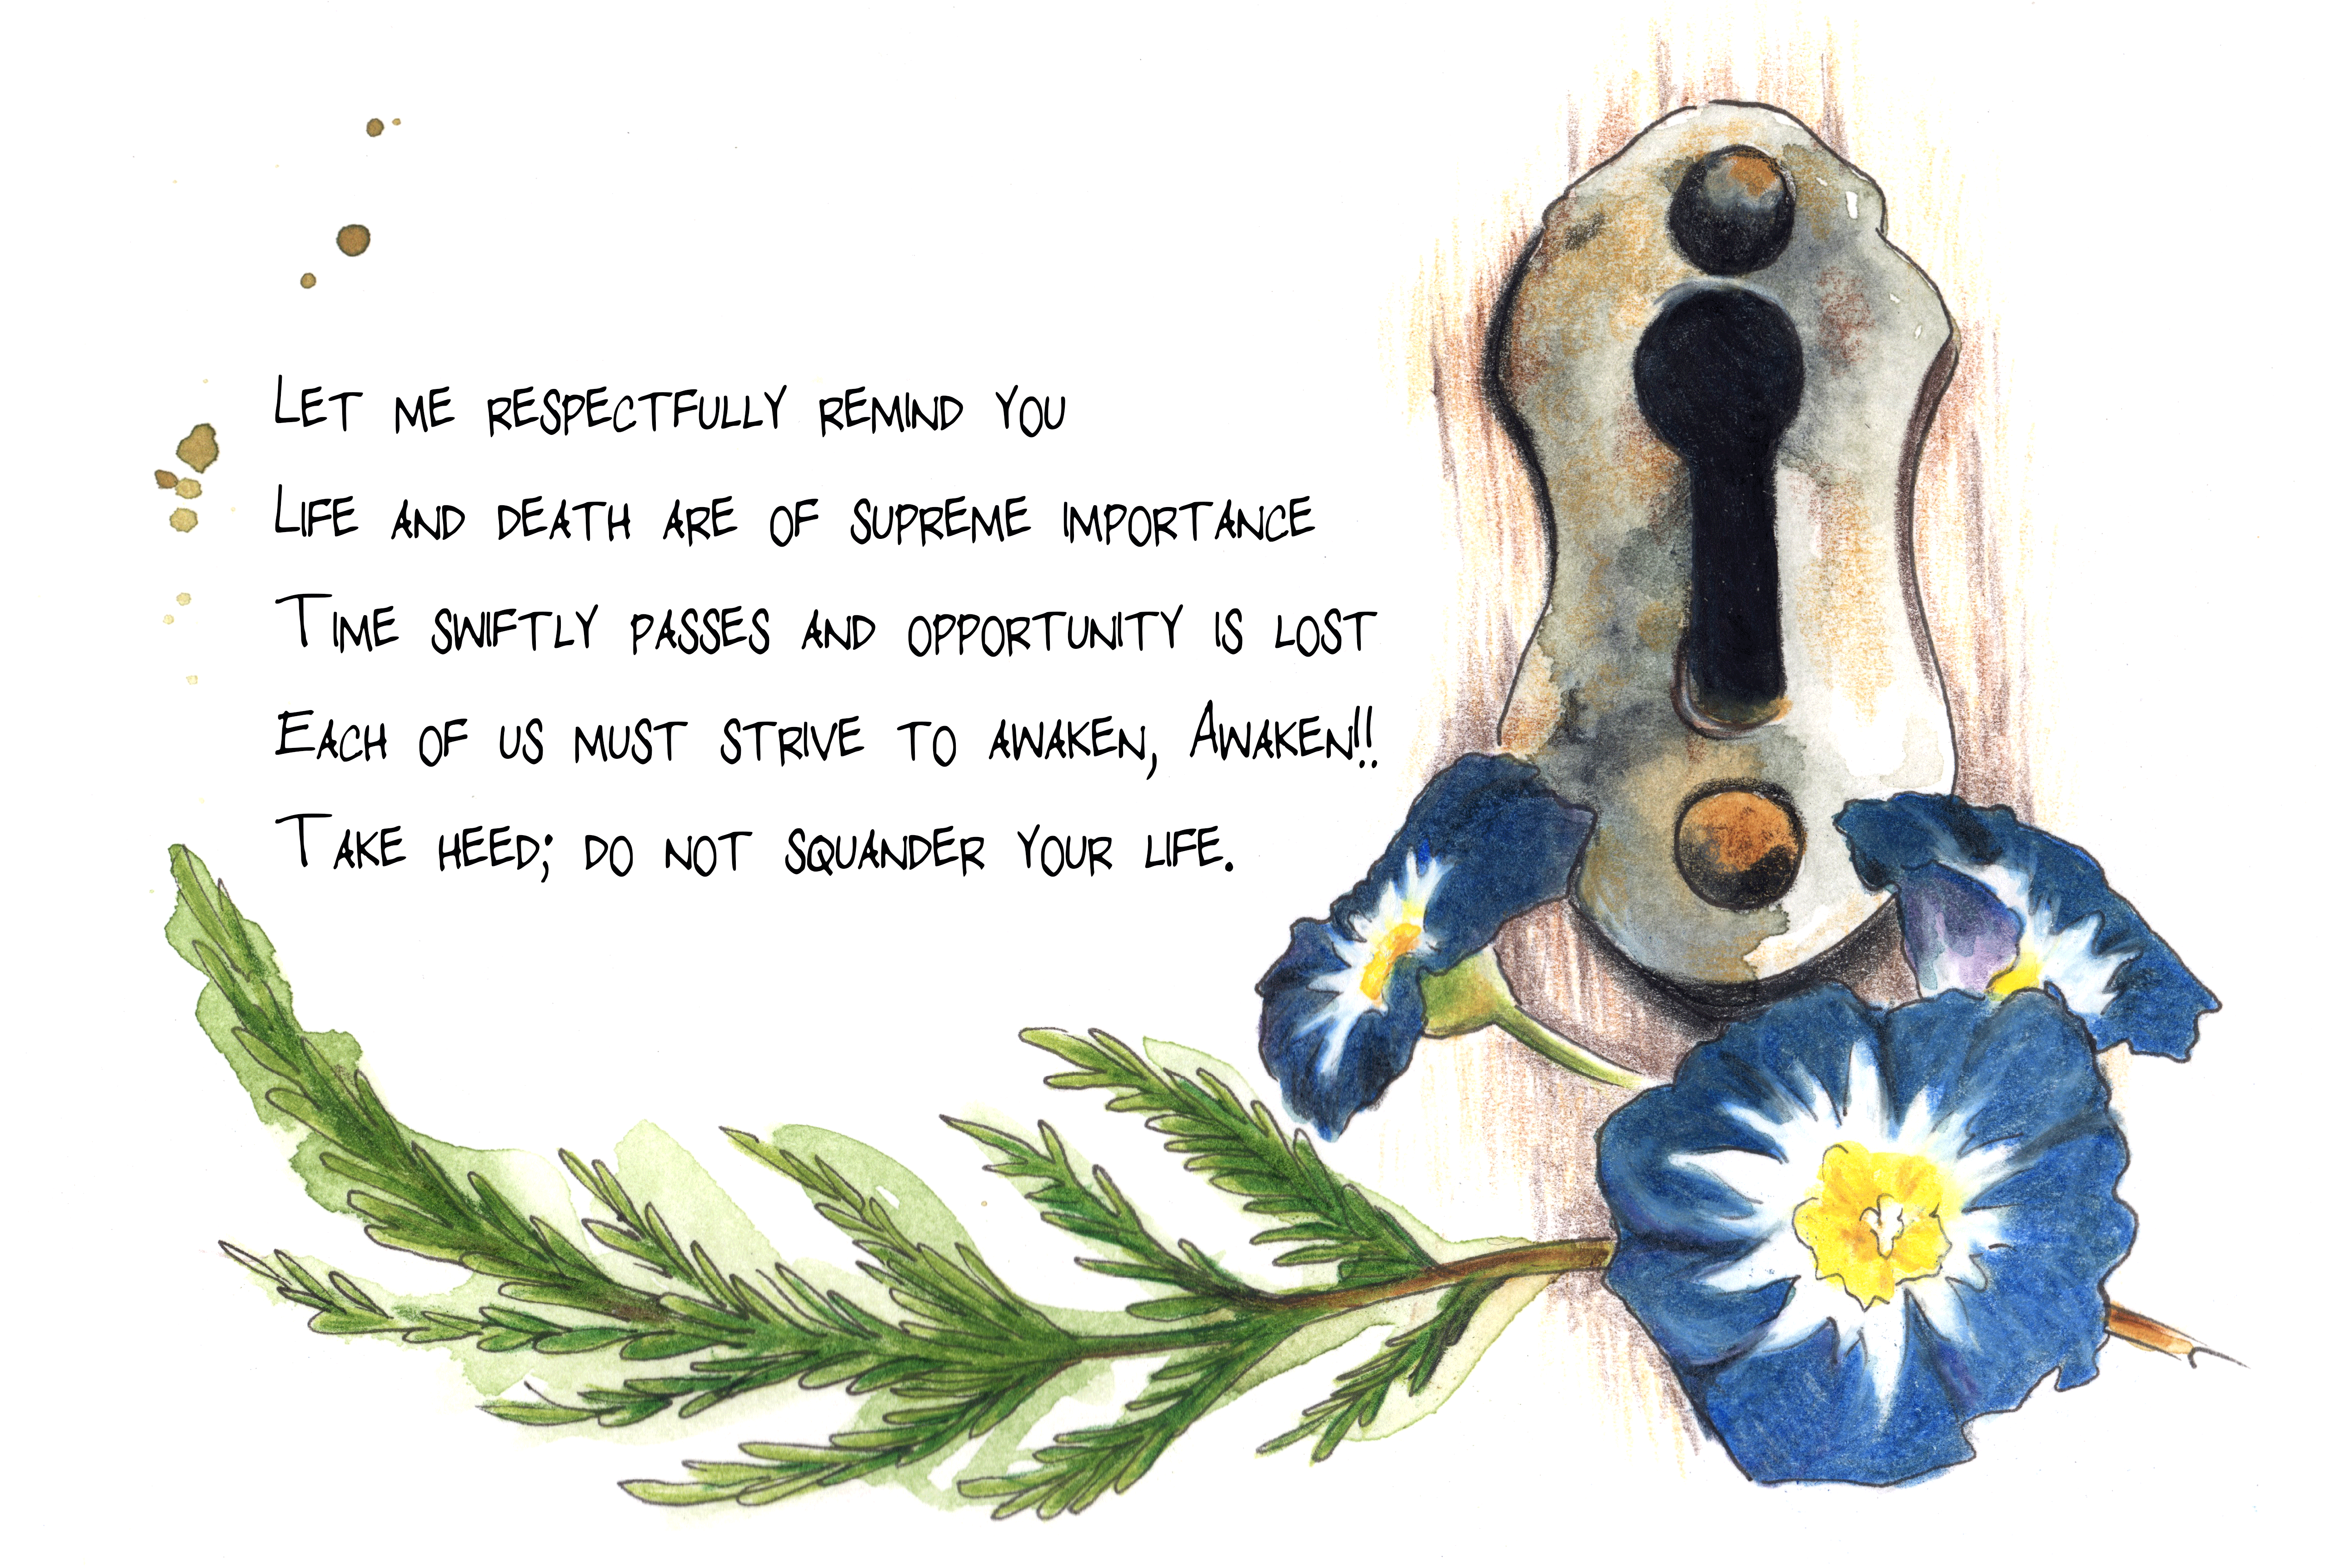 Let me respectfully remind you
Life and death are of supreme importance
Time swiftly passes and opportunity is lost
Each of us must strive to awaken, Awaken!!
Take heed; do not squander your life.